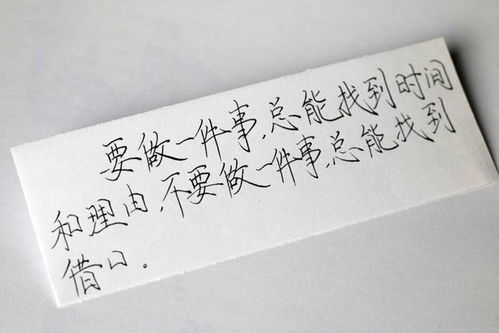 要做一件事，总能找到时间
和理由，不要做一件事，总能找到
借口。